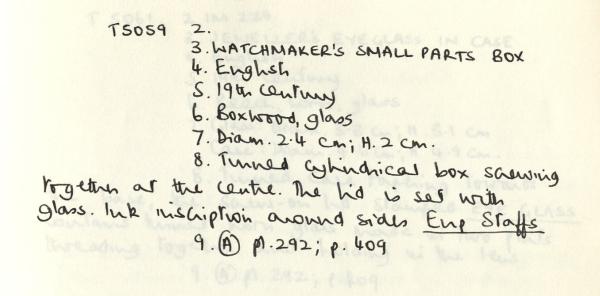 T5059 2.
3. WATCHMAKER'S SMALL PARTS BOX
4. English
5. 19th Century
6. Boxwood, glass
7. Diam. 2.4 cm; H. 2 cm.
8. Turned cylindrical box screwing
together at the centre. The lid is set with
glass. Ink inscription around sides Enp Staffs
9. Ⓐ pl. 292; p. 409